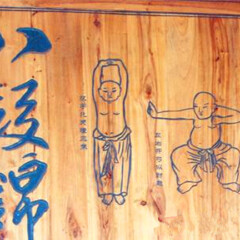 八段锦
双手托天理三焦
左右开弓似射雕